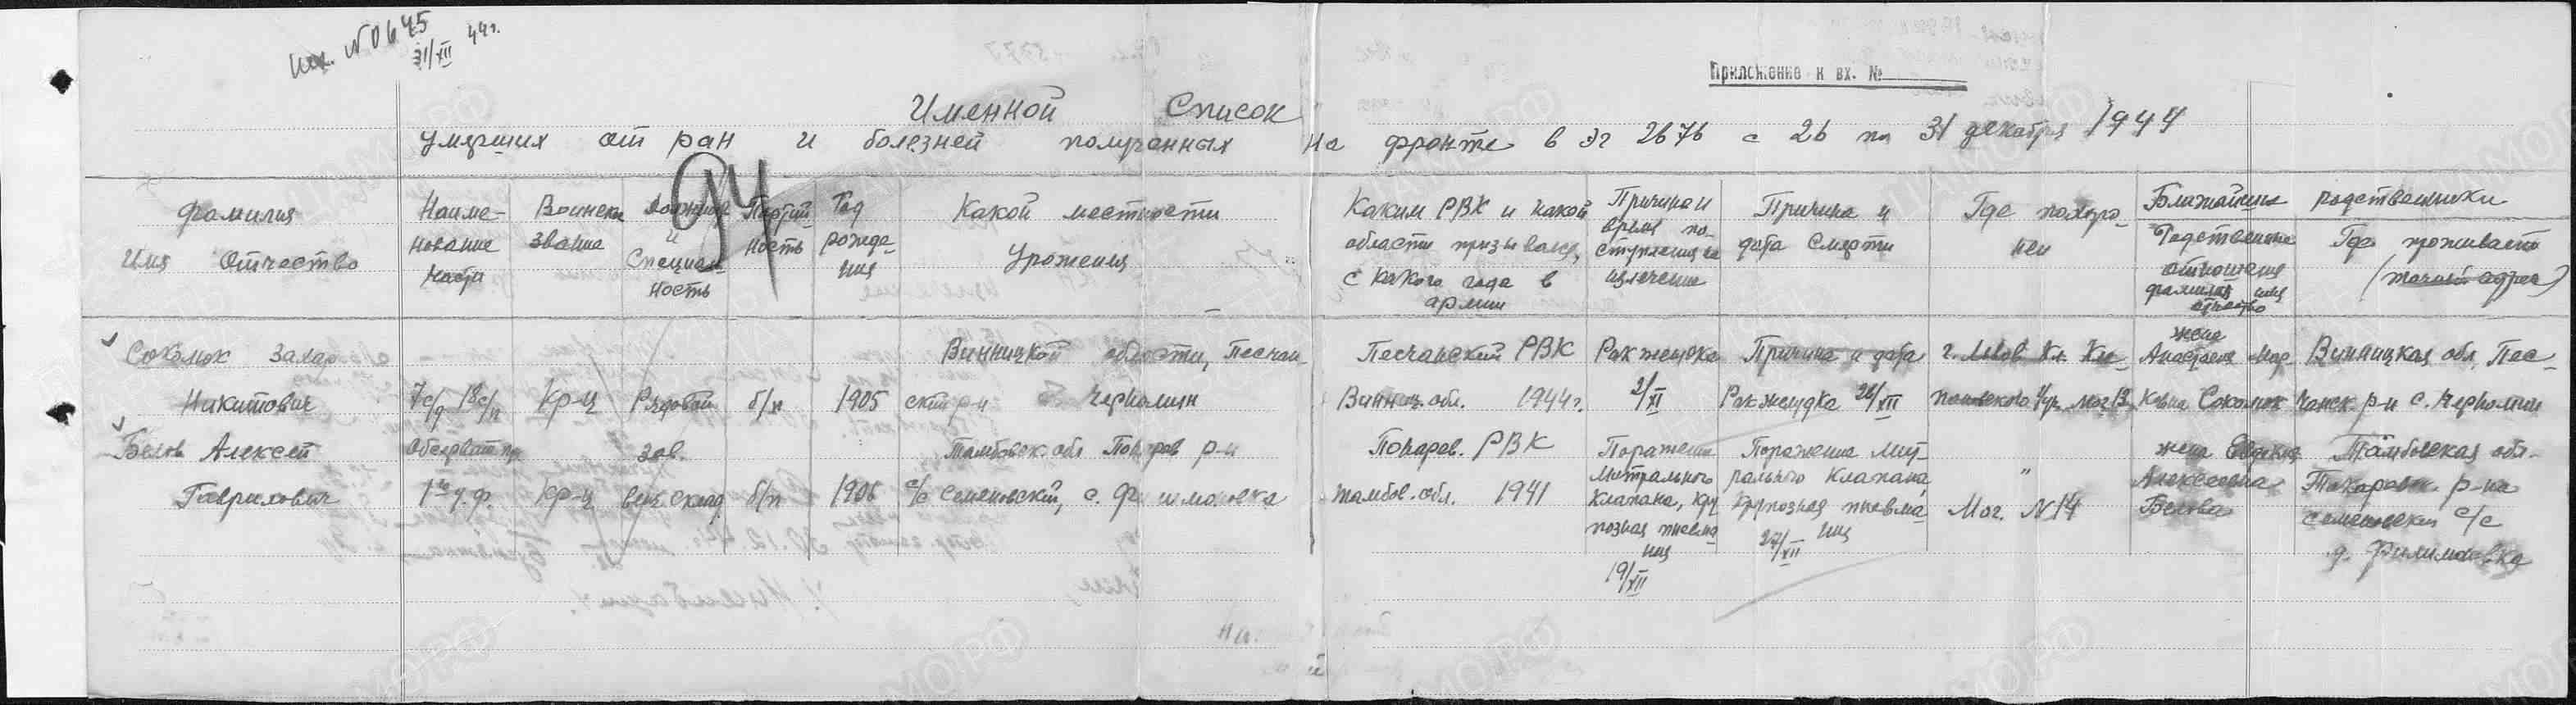 Исх. N 0645
31/XII 44г.
Приложение к вх. №
Именной Список
умерших от ран и болезней полученных на фронте в ЭГ 2676 с 26 по 31 декабря 1944
Фамилия
Имя Отчество
Наиме-
нование
части
Воинское
звание
и
Специаль-
ность
Партий
ность
Год
рожде-
ния
Какой местности
Уроженец
Каким РВК и какой
области призывался,
с какого года в
армии
Причина и
время по-
ступления на
излечение
Причина и
дата Смерти
Где похоро-
нен
Ближайшие родственники
Родственные
отношения
фамилия имя
отчество
Где проживает
(точный адрес)
Соколюк Захар
Никитович
7 с/д 18 с/п
Кр-ц
Рядовой
б/п
1905
Винницкой области, Песчан-
ский р-н с. Чернomин
Песчанский РВК
Винниц. обл. 1944г.
Рак желудка
2/XI
Причина и дата
Рак желудка 26/XII
г. Львов Кл.
мог 13
жена
Анастасия
Соколюк
Винницкая обл. Пес-
чанск. р-н с. Чернomин
Белов Алексей
Гаврилович
1го У.Ф.
Кр-ц
зав.
вещ. склад.
б/п
1906
Тамбовск. обл. Токарев р-н
с/с Семеновский, с. Филимоновка
Токарев. РВК
тамбов. обл. 1941
Поражение
митрального
клапана, кру
позная пневмо
ния
19/XII
Поражение мит-
рального клапана,
крупозная пневмо
ния
27/XII
"
Мог. N 14
жена Евдокия
Алексеевна
Белова
Тамбовская обл.
Токаровск. р-на
Семеновский с/с
д. Филимоновка